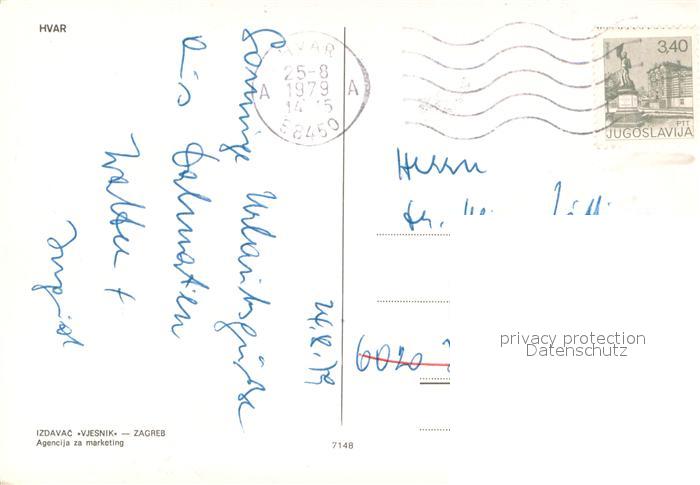 HVAR
HVAR
25-8
1979
A A
58450
3,40
PTT
JUGOSLAVIJA
Sonnige Urlaubsgrüße
aus Dalmatien
Walter +
Ingrid
24.8.79
Herrn
Dr.
6020
privacy protection
Datenschutz
IZDAVAČ «VJESNIK» — ZAGREB
Agencija za marketing
7148